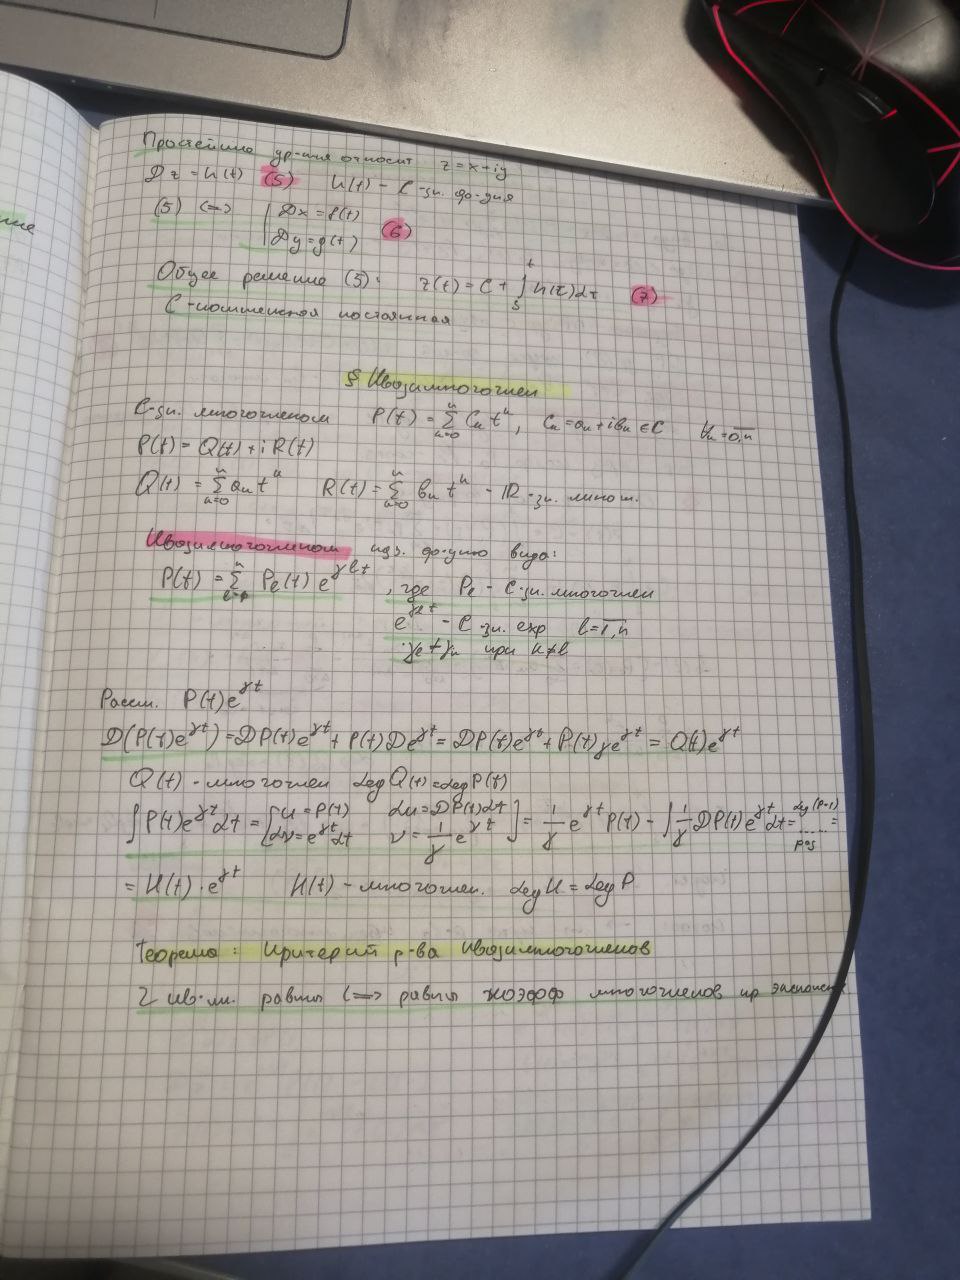 Простейшие ур-ния относит z = x+iy
Dz = h(t) (5) h(t) - C-зн. ф-ция
(5) <=> | Dx = f(t)
Dy = g(t) (6)
Общее решение (5): z(t) = C + ∫_s^t h(τ)dτ (7)
C-комплексная постоянная
§ Квазимногочлен
C-зн. многочленом P(t) = ∑_{k=0}^n C_k t^k, C_k = a_k + i b_k ∈ C ∀k = 0,n
P(t) = Q(t) + i R(t)
Q(t) = ∑_{k=0}^n a_k t^k R(t) = ∑_{k=0}^n b_k t^k - R-зн. многочл.
Квазимногочленом наз. ф-цию вида:
P(t) = ∑^n P_l(t) e^{γ_l t}, где P_l - C-зн. многочлен
e^{γ_l t} - C-зн. exp l = 1,n
γ_l ≠ γ_k при k ≠ l
Рассм. P(t)e^{γt}
D(P(t)e^{γt}) = DP(t)e^{γt} + P(t)De^{γt} = DP(t)e^{γt} + P(t)γe^{γt} = Q(t)e^{γt}
Q(t) - многочлен deg Q(t) = deg P(t)
∫P(t)e^{γt}dt = [u = P(t) du = DP(t)dt
dv = e^{γt}dt v = 1/γ e^{γt}] = 1/γ e^{γt} P(t) - ∫ 1/γ DP(t)e^{γt}dt = ...... deg(P-1) раз =
= H(t)·e^{γt} H(t) - многочлен. deg H = deg P
Теорема: Критерий р-ва квазимногочленов
2 кв.мн. равны <=> равны коэфф многочленов пр